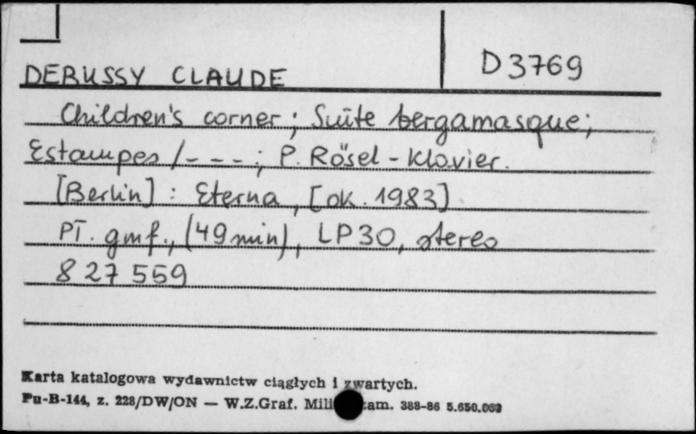 D 3769
DEBUSSY CLAUDE
Children's corner; Suite bergamasque;
Estampes /---; P. Rösel - Klavier.
[Berlin] : Eterna, [ok. 1983]
Pł. gmf., (49 min), LP 30, stereo
8 27 559
Karta katalogowa wydawnictw ciągłych i zwartych.
Pu-B-144, z. 228/DW/ON — W.Z.Graf. 388-86 5.650.062